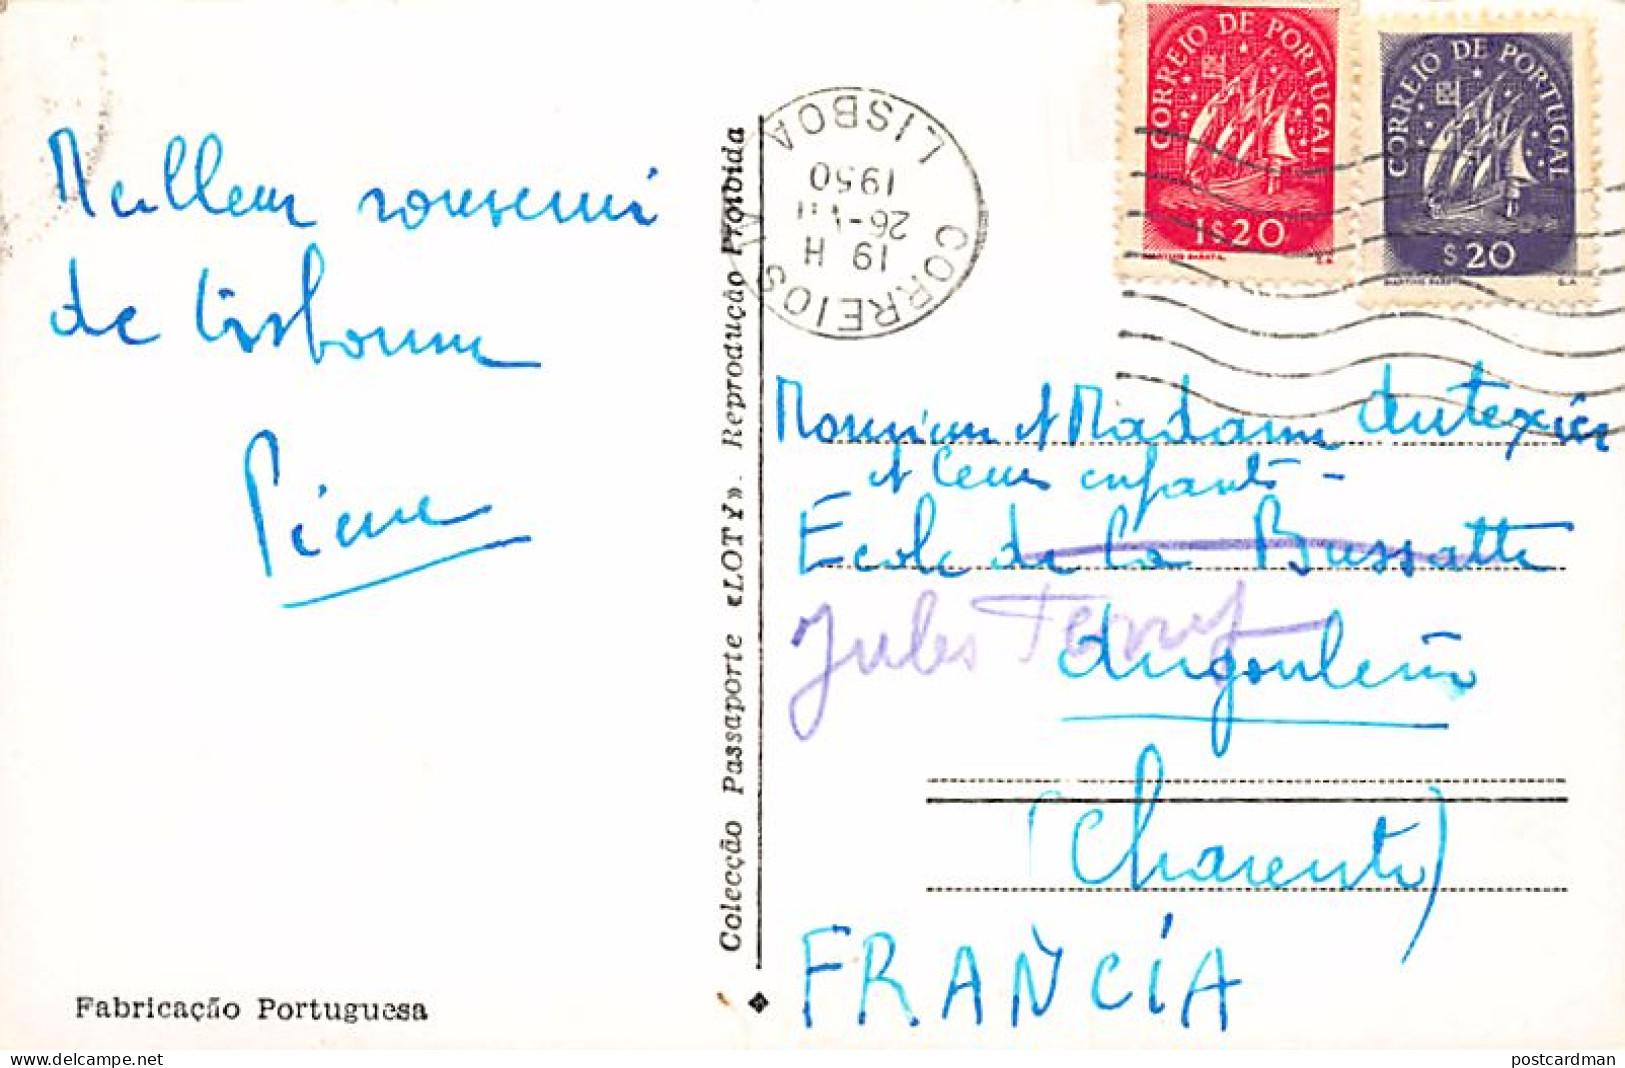 Meilleur souvenir
de Lisbonne
Pierre
Fabricação Portuguesa
Colecção Passaporte «LOTY» - Reprodução Proibida
CORREIOS LISBOA
19 H
1950
CORREIO DE PORTUGAL
1$20
MARTINS BARATA.
CORREIO DE PORTUGAL
$20
MARTINS BARATA
Monsieur et Madame Dutexier
et leurs enfants -
École de la Bussatte
Jules Ferry
Angoulême
(Charente)
FRANCIA
postcardman